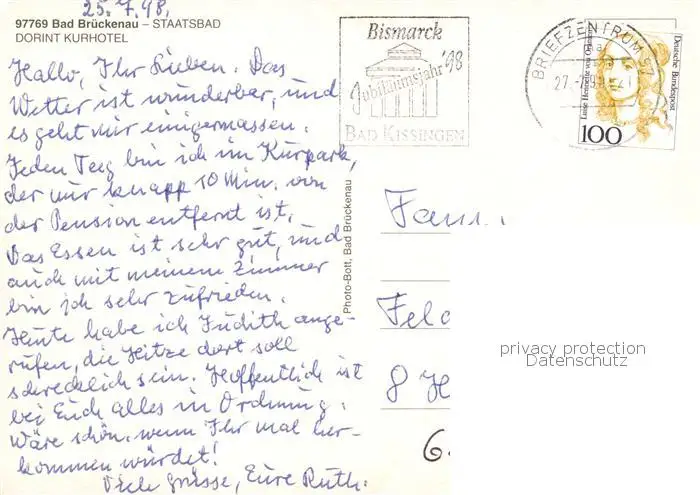 25.7.98.
97769 Bad Brückenau – STAATSBAD
DORINT KURHOTEL
Hallo, Ihr Lieben. Das
Wetter ist wunderbar, und
es geht mir einigermassen.
Jeden Tag bin ich im Kurpark,
der nur knapp 10 Min. von
der Pension entfernt ist.
Das Essen ist sehr gut, und
auch mit meinem Zimmer
bin ich sehr zufrieden.
Heute habe ich Judith ange-
rufen, die Hitze dort soll
schrecklich sein. Hoffentlich ist
bei Euch alles in Ordnung.
Wäre schön, wenn Ihr mal her-
kommen würdet!
Viele Grüsse, Eure Ruth.
Photo-Bott, Bad Brückenau
Bismarck
Jubiläumsjahr '98
BAD KISSINGEN
BRIEFZENTRUM 97
27.
Luise Henriette von
Deutsche Bundespost
100
Fam.
Feld
8
6
privacy protection
Datenschutz